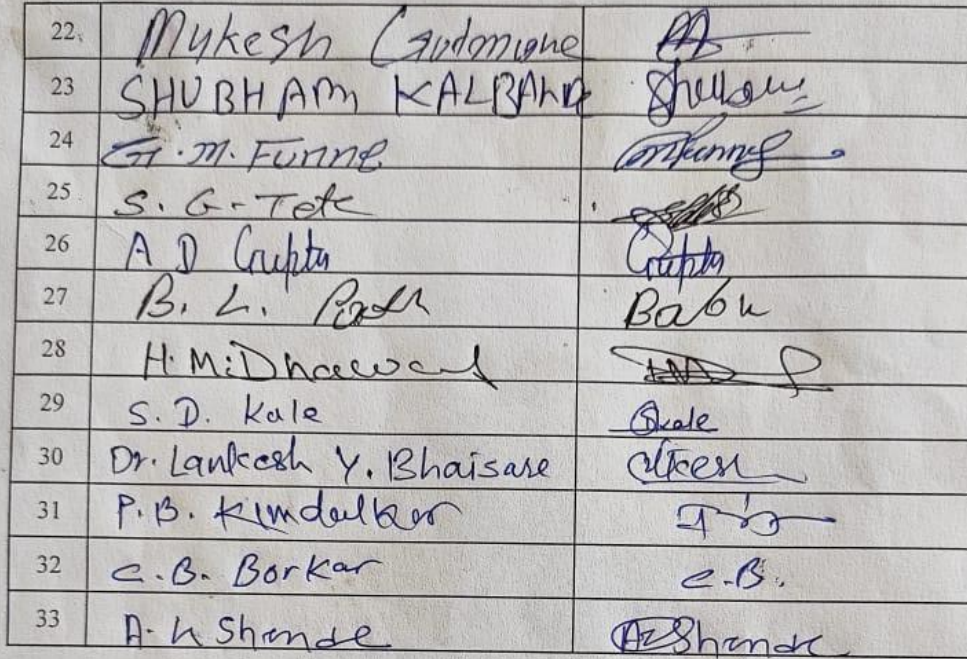 22. Mukesh
23 SHUBHAM KALBANDE
24 G. M. Funne
25 S. G. Tete
26 A D Gupta Gupta
27 B. L. Babu
28 H. M. Dhaward
29 S. D. Kale Skale
30 Dr. Lankesh Y. Bhaisare
31 P. B. Kimdelkar
32 C. B. Borkar C.B.
33 A. K Shende AShende